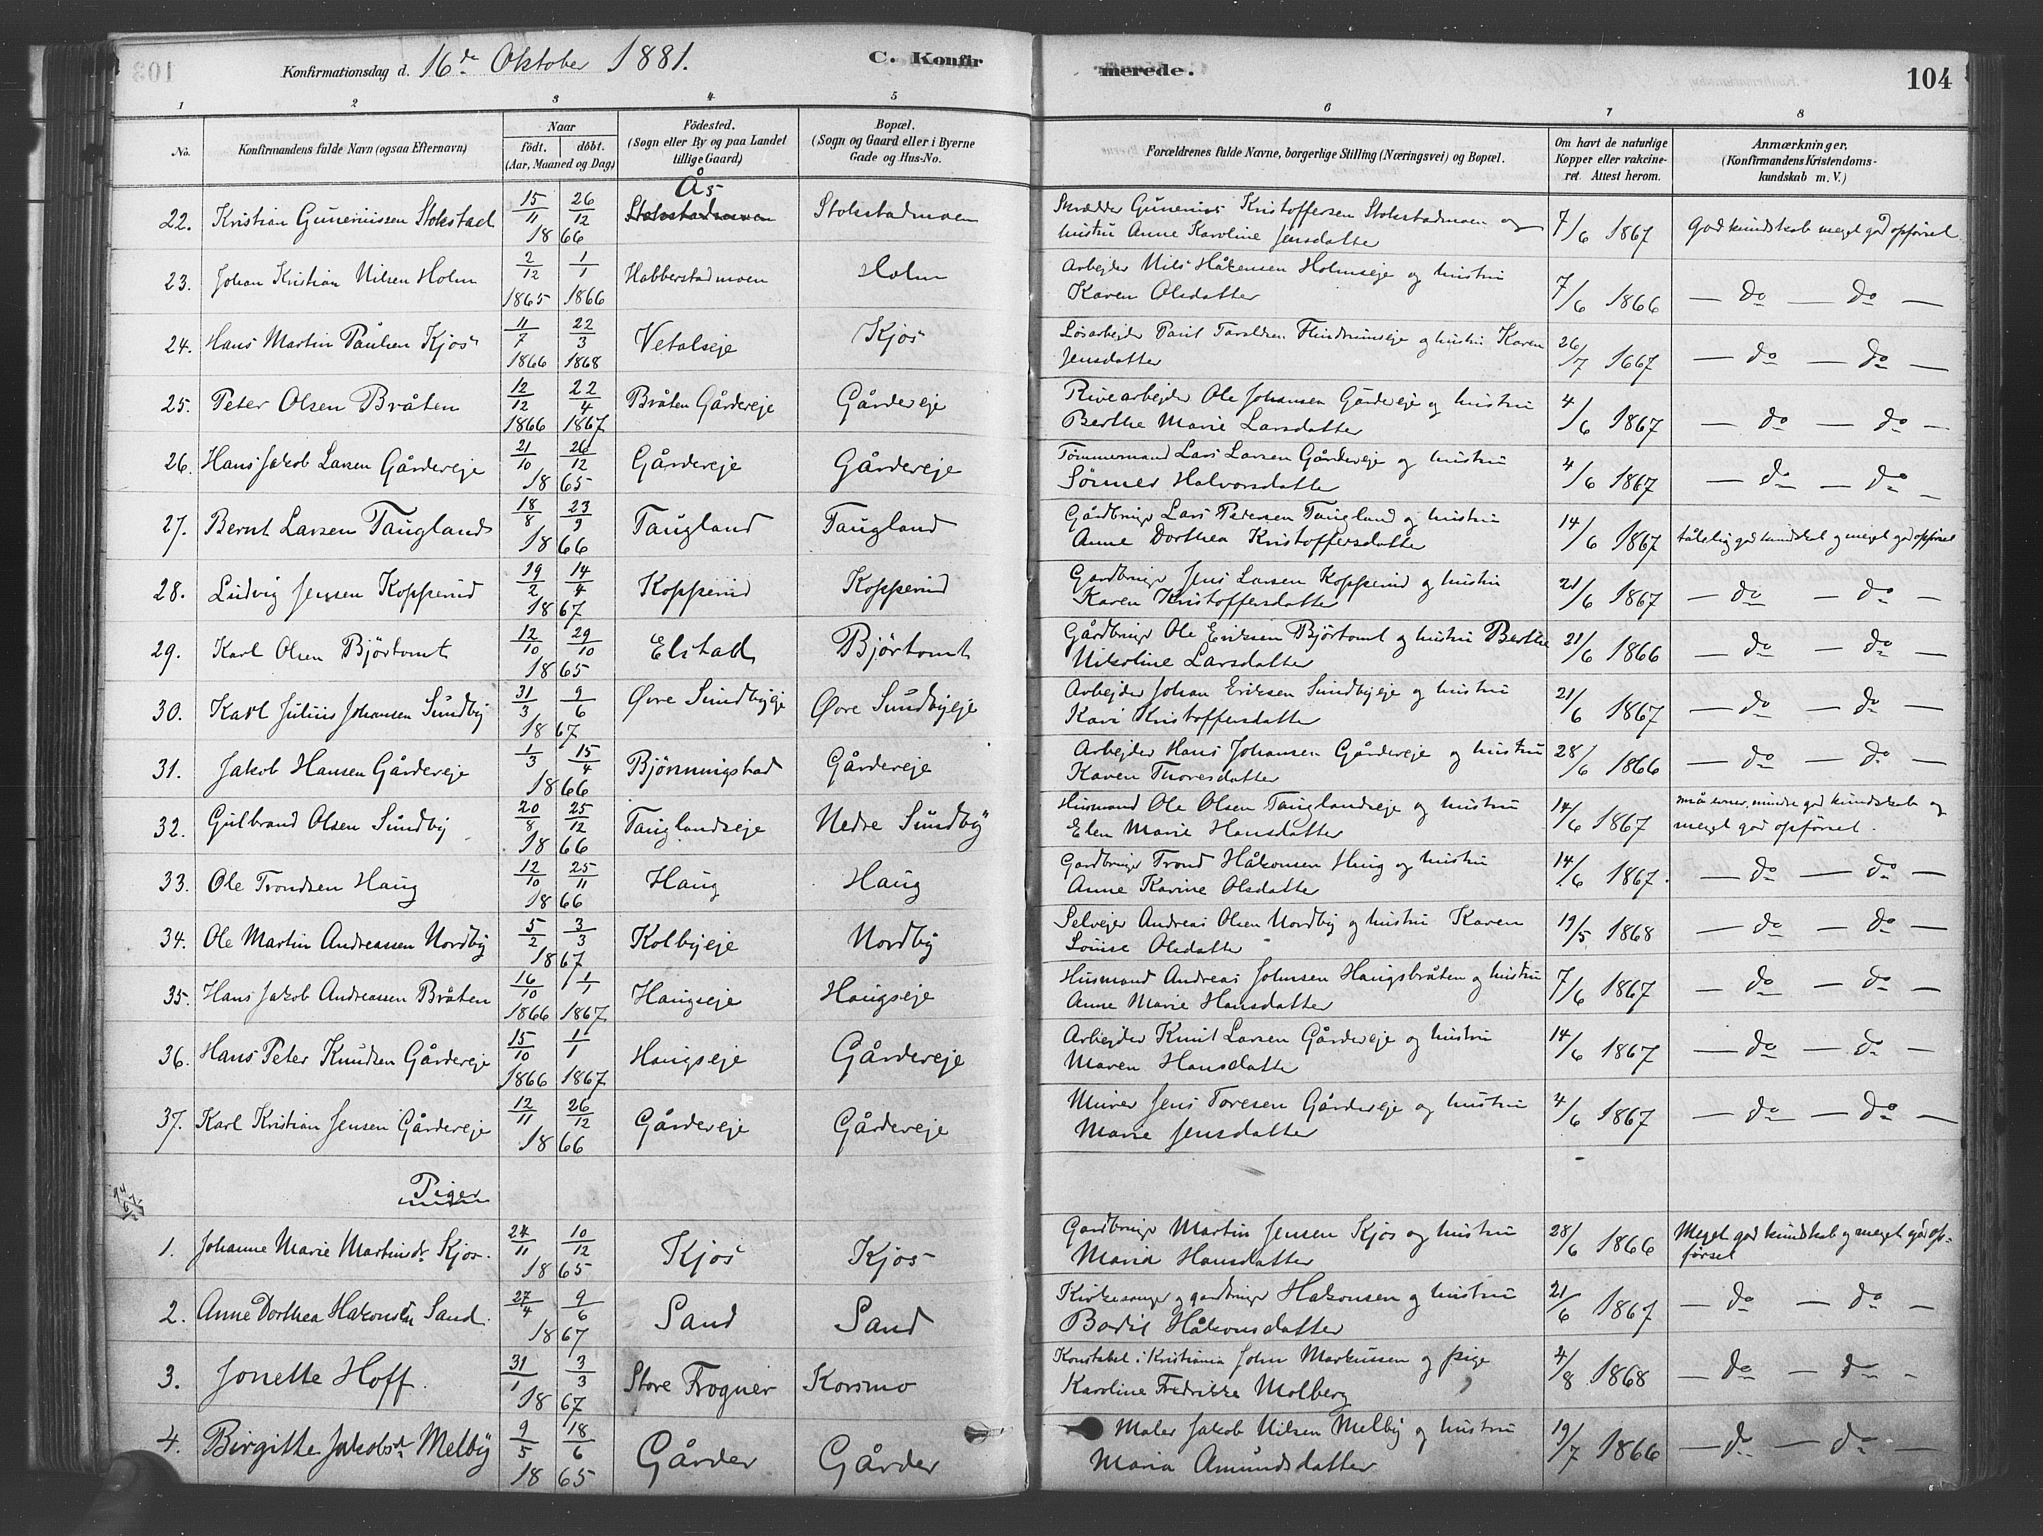 Konfirmationsdag d. 16de Oktober 1881. C. Konfirmerede. 104
1 2 3 4 5 6 7 8
No. Konfirmandens fulde Navn (ogsaa Efternavn) Naar født. døbt. (Aar, Maaned og Dag) Fødested. (Sogn eller By og paa Landet tillige Gaard) Bopæl. (Sogn og Gaard eller i Byerne Gade og Hus-No. Forældrenes fulde Navne, borgerlige Stilling (Næringsvei) og Bopæl. Om havt de naturlige Kopper eller vakcineret. Attest herom. Anmærkninger. (Konfirmandens Kristendomskundskab m. V.)
22. Kristian Guneriussen Stokstad 15/11 26/12 1866 Ås Stokstadmoen Stokstadmoen Skrædder Gunerius Kristoffersen Stokstadmoen og hustru Anne Karoline Jensdatter 7/6 1867 God kundskab meget god opførsel
23. Johan Kristian Nilsen Holm 2/12 1865 1/1 1866 Habberstadmoen Holm Arbejder Nils Håkensen Holmseje og hustru Karen Olsdatter 7/6 1866 — do — do —
24. Hans Martin Paulsen Kjos 11/7 1866 22/3 1868 Vetalseje Kjos Løsarbejder Paul Taraldsen Flindrumseje og hustru Karen Jensdatter 26/7 1667 — do — do —
25. Peter Olsen Bråten 12/12 1866 22/4 1867 Bråten Gårdereje Gårdereje Ole Johansen Gårdereje og hustru Berthe Marie Larsdatter 4/6 1867 — do — do —
26. Hans Jakob Larsen Gårdereje 21/10 26/12 1865 Gårdereje Gårdereje Tømmermand Lars Larsen Gårdereje og hustru Halvorsdatter 4/6 1867 — do — do —
27. Bernt Larsen Taugland 18/8 23/9 1866 Taugland Taugland Gårdbruger Lars Pedersen Taugland og hustru Anne Dorthea Kristoffersdatter 14/6 1867 tålelig god kundskab og meget god opførsel
28. Ludvig Jensen Kopperud 19/2 14/4 1867 Kopperud Kopperud Gardbruger Jens Larsen Kopperud og hustru Karen Kristoffersdatter 21/6 1867 — do — do —
29. Karl Olsen Bjørtomt 12/10 29/10 1865 Elstad Bjørtomt Gårdbruger Ole Eriksen Bjørtomt og hustru Berthe Nikoline Larsdatter 21/6 1866 — do — do —
30. Karl Julius Johansen Sundby 31/3 9/6 1867 Øvre Sundbyeje Øvre Sundbyeje Arbejder Johan Eriksen Sundbyeje og hustru Kari Kristoffersdatter 21/6 1867 — do — do —
31. Jakob Hansen Gårdereje 1/3 15/4 1866 Bjørnungstad Gårdereje Arbejder Hans Johansen Gårdereje og hustru Karen Thoresdatter 28/6 1866 — do — do —
32. Gulbrand Olsen Sundby 20/8 25/12 1866 Tauglandseje Nedre Sundby Husmand Ole Olsen Tauglandseje og hustru Elen Marie Hansdatter 14/6 1867 mindre god kundskab og meget god opførsel.
33. Ole Trondsen Haug 12/10 25/11 1866 Haug Haug Gardbruger Trond Håkonsen Haug og hustru Anne Karine Olsdatter 14/6 1867. — do — do —
34. Ole Martin Andreassen Nordby 5/2 3/3 1867 Kolbyeje Nordby Selvejer Andreas Olsen Nordby og hustru Karen Louise Olsdatter 19/5 1868 — do — do —
35. Hans Jakob Andreassen Bråten 16/10 1866 1/1 1867 Haugseje Haugseje Husmand Andreas Johnsen Haugsbråten og hustru Anne Marie Hansdatter 7/6 1867 — do — do —
36. Hans Peter Knudsen Gårdereje 15/10 1866 1/1 1867 Haugseje Gårdereje Arbejder Knut Larsen Gårdereje og hustru Maren Hansdatter 14/6 1867 — do — do —
37. Karl Kristian Jensen Gårdereje 12/11 26/12 1866 Gårdereje Gårdereje Murer Jens Toresen Gårdereje og hustru Marie Jensdatter 4/6 1867 — do — do —
Piger
1. Johanne Marie Martinsdr. Kjos. 24/11 10/12 1865 Kjos Kjos Gardbruger Martin Jensen Kjos og hustru Maria Hansdatter 28/6 1866 Meget god kundskab og meget god opførsel
2. Anne Dorthea Hakonsdr Sand. 27/4 9/6 1867 Sand Sand Kirkesanger og gardbruger Hakonsen og hustru Bodil Håkonsdatter 21/6 1867 — do — do —
3. Jonette Hoff. 31/1 3/3 1867 Store Frogner Korsmo Konstabel i Kristiania John Markussen og pige Karoline Fredrikke Molberg 4/8 1868 — do — do —
4. Birgitte Jakobsdr Melby 9/5 18/6 1865 Gårder Gårder Maler Jakob Nilsen Melby og hustru Maria Amundsdatter 19/7 1866 — do — do —